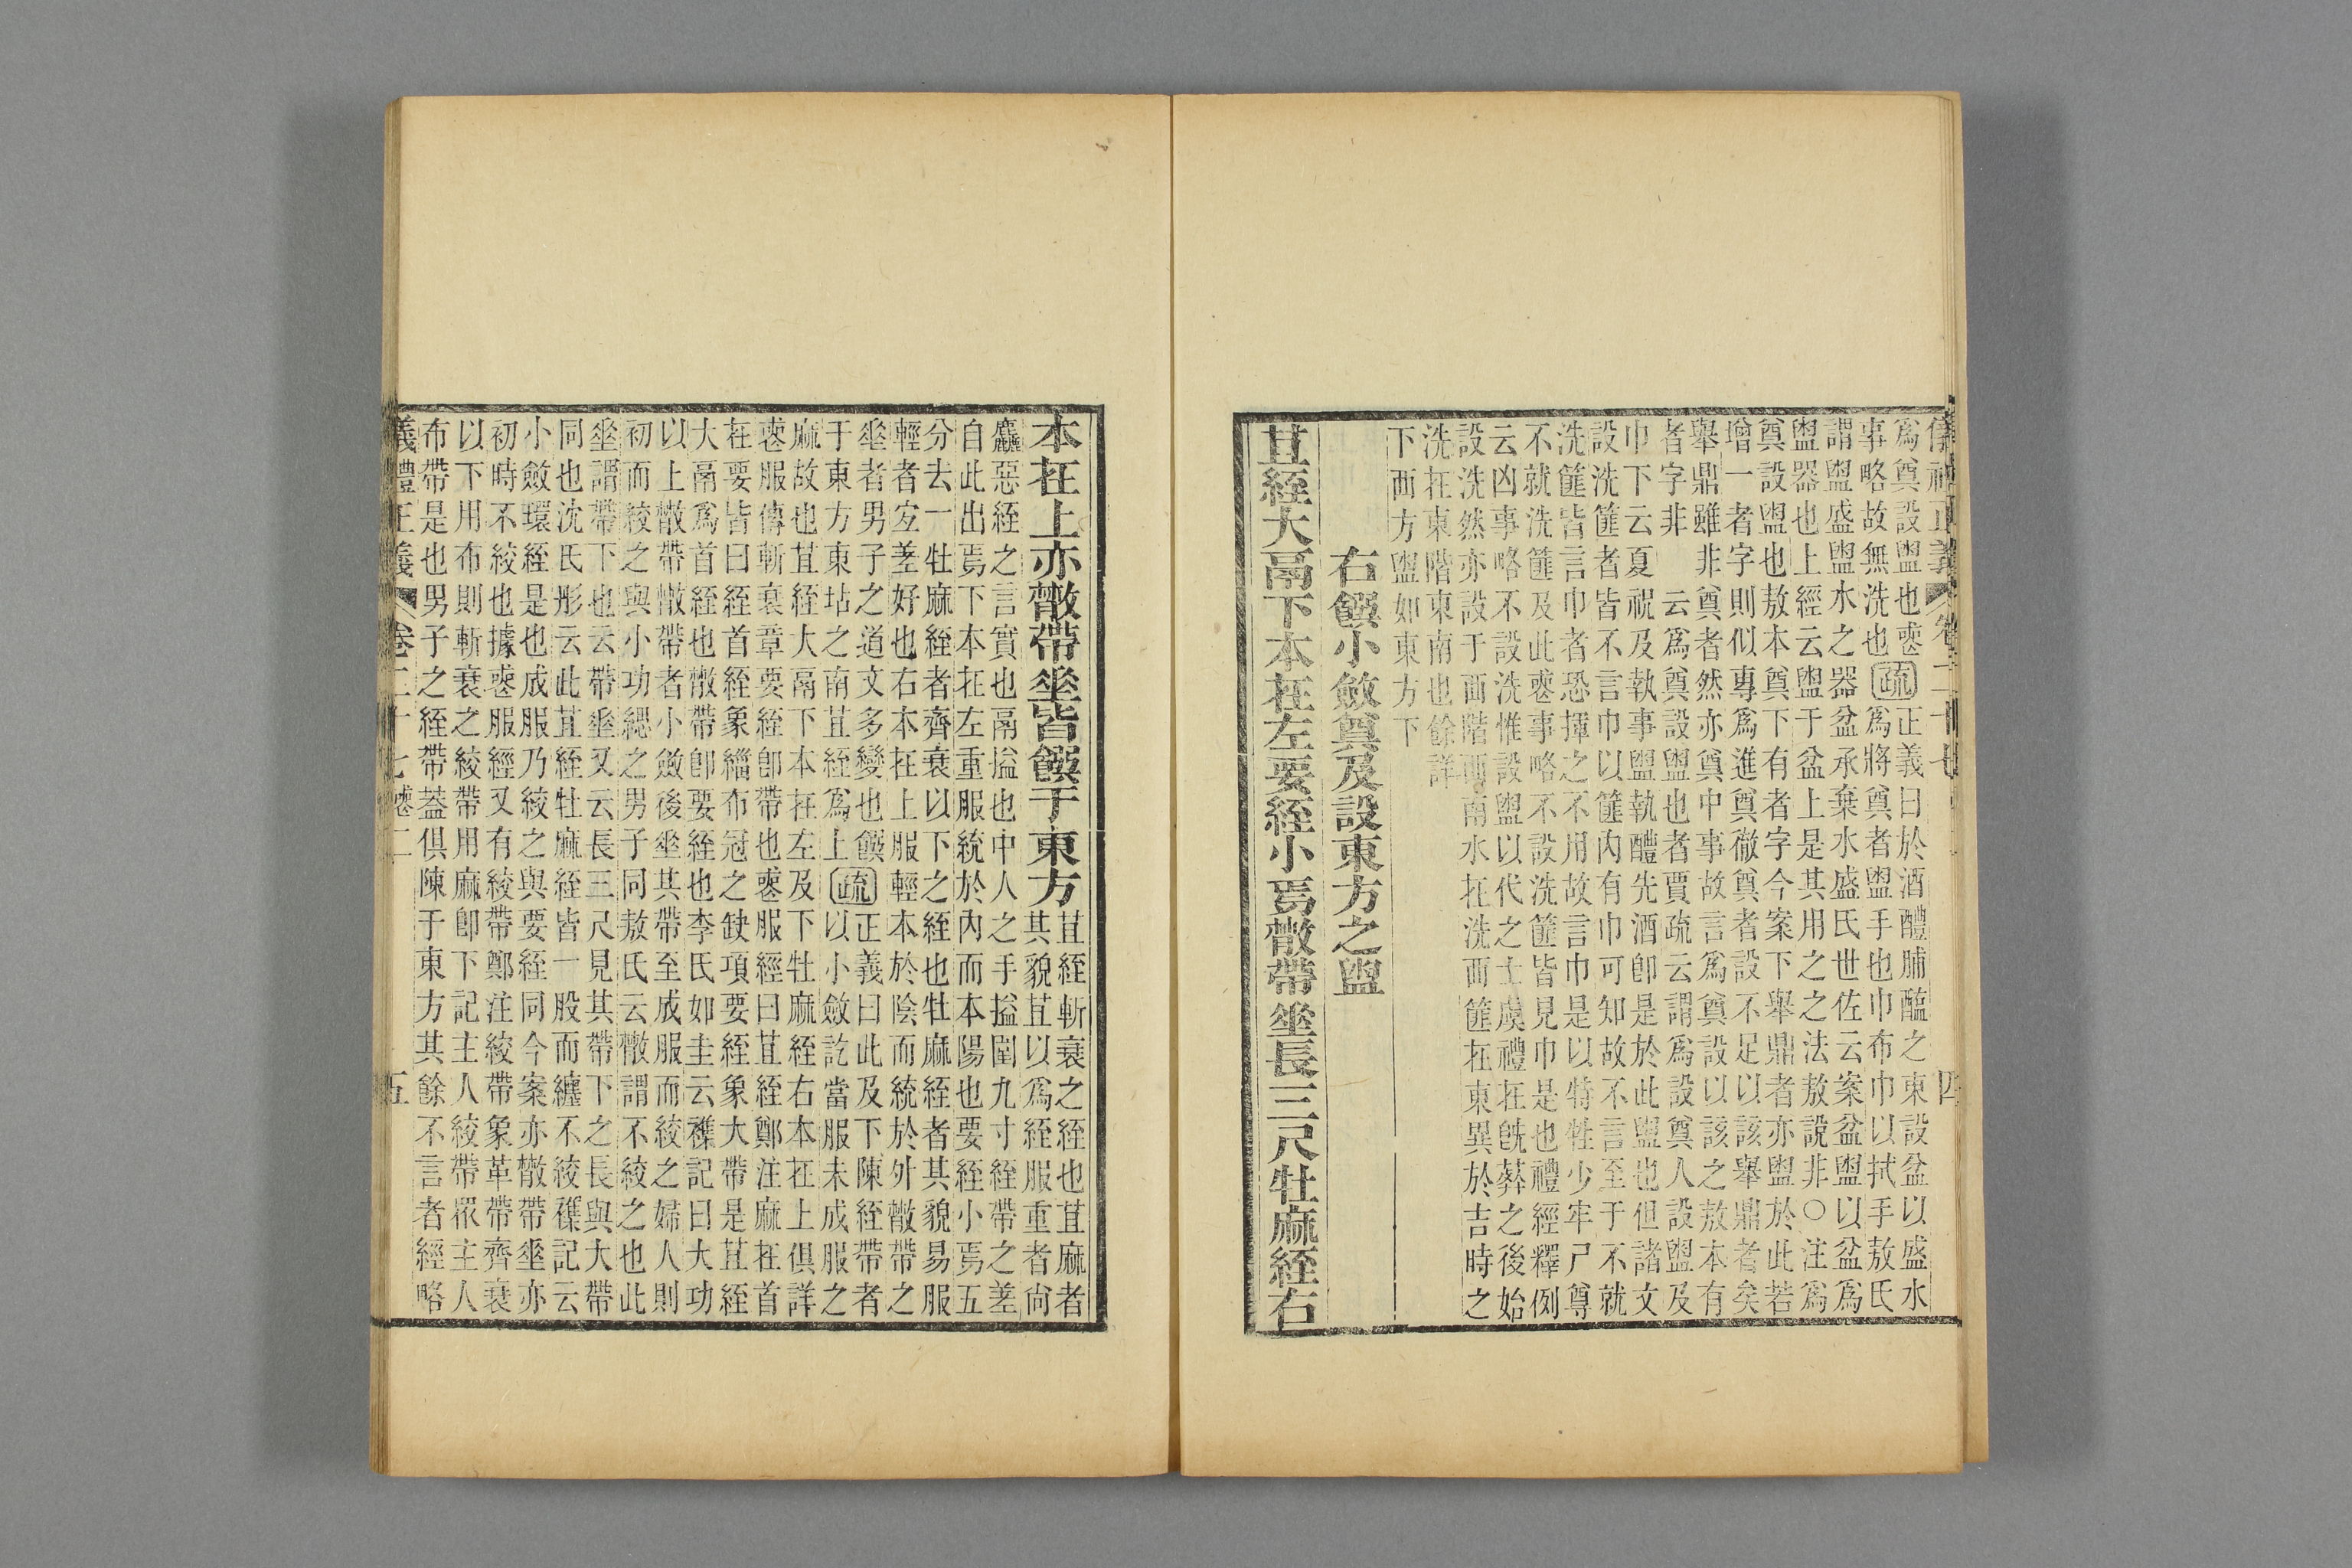 儀禮正義 卷二十七 四
爲奠設盥也喪 正義曰於酒醴脯醢之東設盆以盛水
事略故無洗也 疏 爲將奠者盥手也巾布巾以拭手敖氏
謂盥盛盥水之器盆承棄水盛氏世佐云案盆盥以盆爲
盥器也上經云盥于盆上是其用之之法敖說非○注爲
奠設盥也敖本奠下有者字今案下舉鼎者亦盥於此若
增一者字則似專爲進奠徹奠者設不足以該舉鼎者矣
舉鼎雖非奠者然亦奠中事故言爲奠設以該之敖本有
者字非 云爲奠設盥也者賈疏云謂爲設奠人設盥及
巾下云夏祝及執事盥執醴先酒卽是於此盥也但諸文
設洗篚者皆不言巾以篚內有巾可知故不言至于不就
洗篚皆言巾者恐揮之不用故言巾是以特牲少牢尸尊
不就洗篚及此喪事略不設洗篚皆見巾是也禮經釋例
云凶事略不設洗惟設盥以代之士虞禮在旣葬之後始
設洗然亦設于西階西南水在洗西篚在東異於吉時之
洗在東階東南也餘詳
下西方盥如東方下
右饌小斂奠及設東方之盥
苴絰大鬲下本在左要絰小焉散帶垂長三尺牡麻絰右
本在上亦散帶垂皆饌于東方 苴絰斬衰之絰也苴麻者
其貌苴以爲絰服重者尙
麤惡絰之言實也鬲搤也中人之手搤圍九寸絰帶之差
自此出焉下本在左重服統於內而本陽也要絰小焉五
分去一牡麻絰者齊衰以下之絰也牡麻絰者其貌易服
輕者宐差好也右本在上服輕本於陰而統於外散帶之
垂者男子之道文多變也饌 正義曰此及下陳絰帶者
于東方東坫之南苴絰爲上 疏 以小斂訖當服未成服之
麻故也苴絰大鬲下本在左及下牡麻絰右本在上俱詳
喪服傳斬衰章要絰卽帶也喪服經曰苴絰鄭注麻在首
在要皆曰絰首絰象緇布冠之缺項要絰象大帶是苴絰
大鬲爲首絰也散帶卽要絰也李氏如圭云雜記曰大功
以上散帶散帶者小斂後垂其帶至成服而絞之婦人則
初而絞之與小功緦之男子同敖氏云散謂不絞之也此
垂謂帶下也云帶垂又云長三尺見其帶下之長與大帶
同也沈氏彤云此苴絰牡麻絰皆一股而纏不絞襍記云
小斂環絰是也成服乃絞之與要絰同今案亦散帶垂亦
初時不絞也據喪服經又有絞帶鄭注絞帶象革帶齊衰
以下用布則斬衰之絞帶用麻卽下記主人絞帶眾主人
布帶是也男子之絰帶蓋俱陳于東方其餘不言者經略
儀禮正義 卷二十七喪二 五